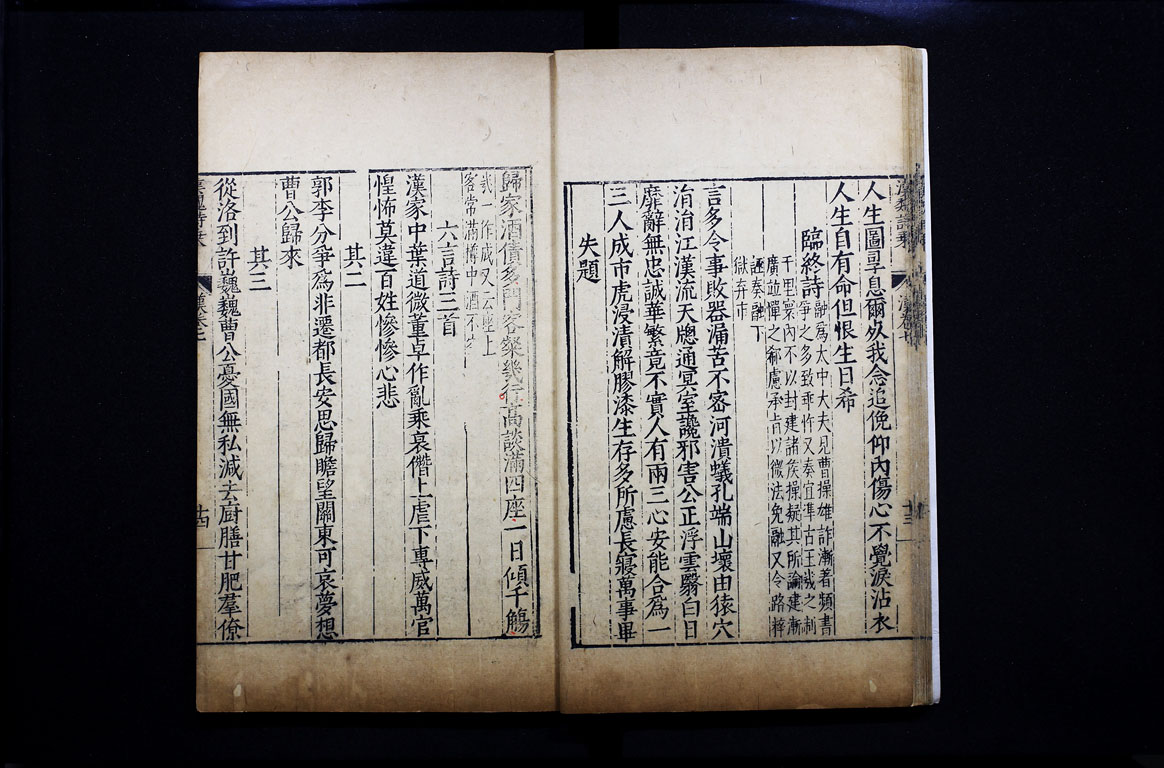 人生圖享息爾死我念追俛仰內傷心不覺淚沾衣
人生自有命但恨生日希
臨終詩
融爲太中大夫見曹操雄詐漸著頻書
爭之多致乖忤又奏宜準古王畿之制
千里寰內不以封建諸侯操疑其所論建漸
廣益憚之郗慮承旨以微法免融又令路粹
誣奏融下
獄弃市
言多令事敗器漏苦不密河潰蟻孔端山壞由猿穴
涓涓江漢流天牕通冥室讒邪害公正浮雲翳白日
靡辭無忠誠華繁竟不實人有兩三心安能合爲一
三人成市虎浸漬解膠漆生存多所慮長寢萬事畢
失題
歸家酒債多門客粲幾行高談滿四座一日傾千觴
我一作成又云座上
客常滿樽中酒不
六言詩三首
漢家中葉道微董卓作亂乘衰僭上虐下專威萬官
惶怖莫違百姓慘慘心悲
其二
郭李分爭爲非遷都長安思歸瞻望關東可哀夢想
曹公歸來
其三
從洛到許巍巍曹公憂國無私減去厨膳甘肥羣僚
十四